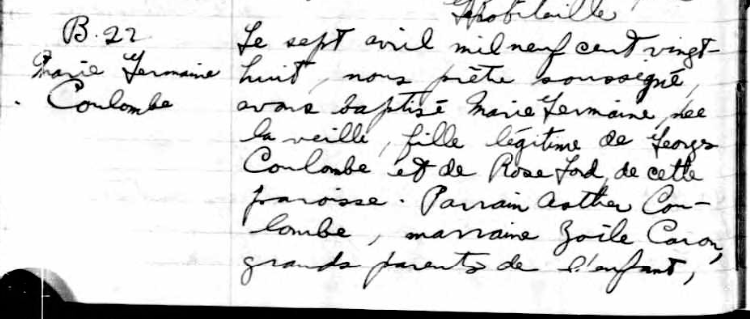 B. 22
Marie Germaine
Coulombe
Le sept avril mil neuf cent vingt-
huit, nous prêtre soussigné,
avons baptisé Marie Germaine, née
la veille, fille légitime de Georges
Coulombe et de Rose Ford, de cette
paroisse. Parrain Cou-
lombe, marraine Zoïle Caron,
grands parents de l'enfant,